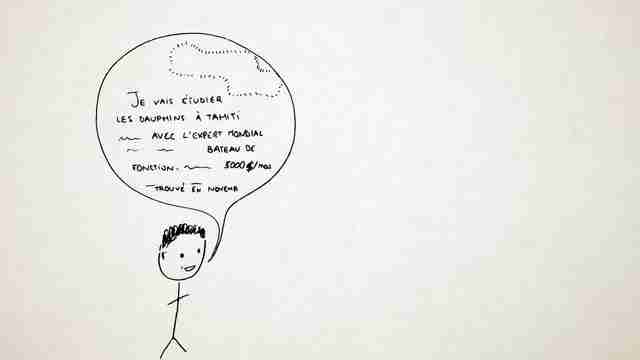 JE VAIS ÉTUDIER
LES DAUPHINS À TAHITI
AVEC L'EXPERT MONDIAL
BATEAU DE
FONCTION. 5000 $/MOIS
TROUVÉ EN NOVEMB